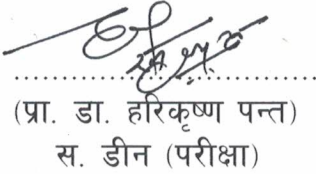 (प्रा. डा. हरिकृष्ण पन्त)
स. डीन (परीक्षा)